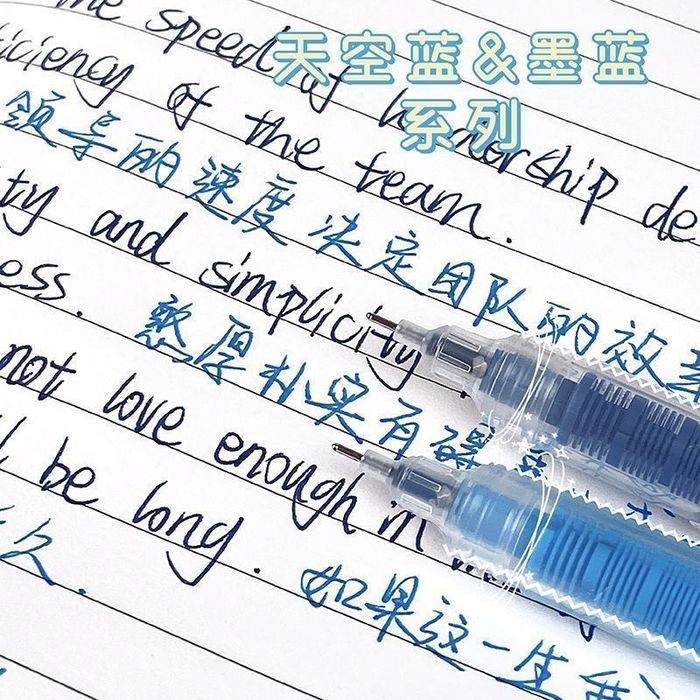 天空蓝&墨蓝
系列
the speed of
ship de
iciency of the team.
领导的速度决定团队的效
ty and simplicity
ess. 憨厚朴实有碍
not love enough in
be long. 如果这一生
久.